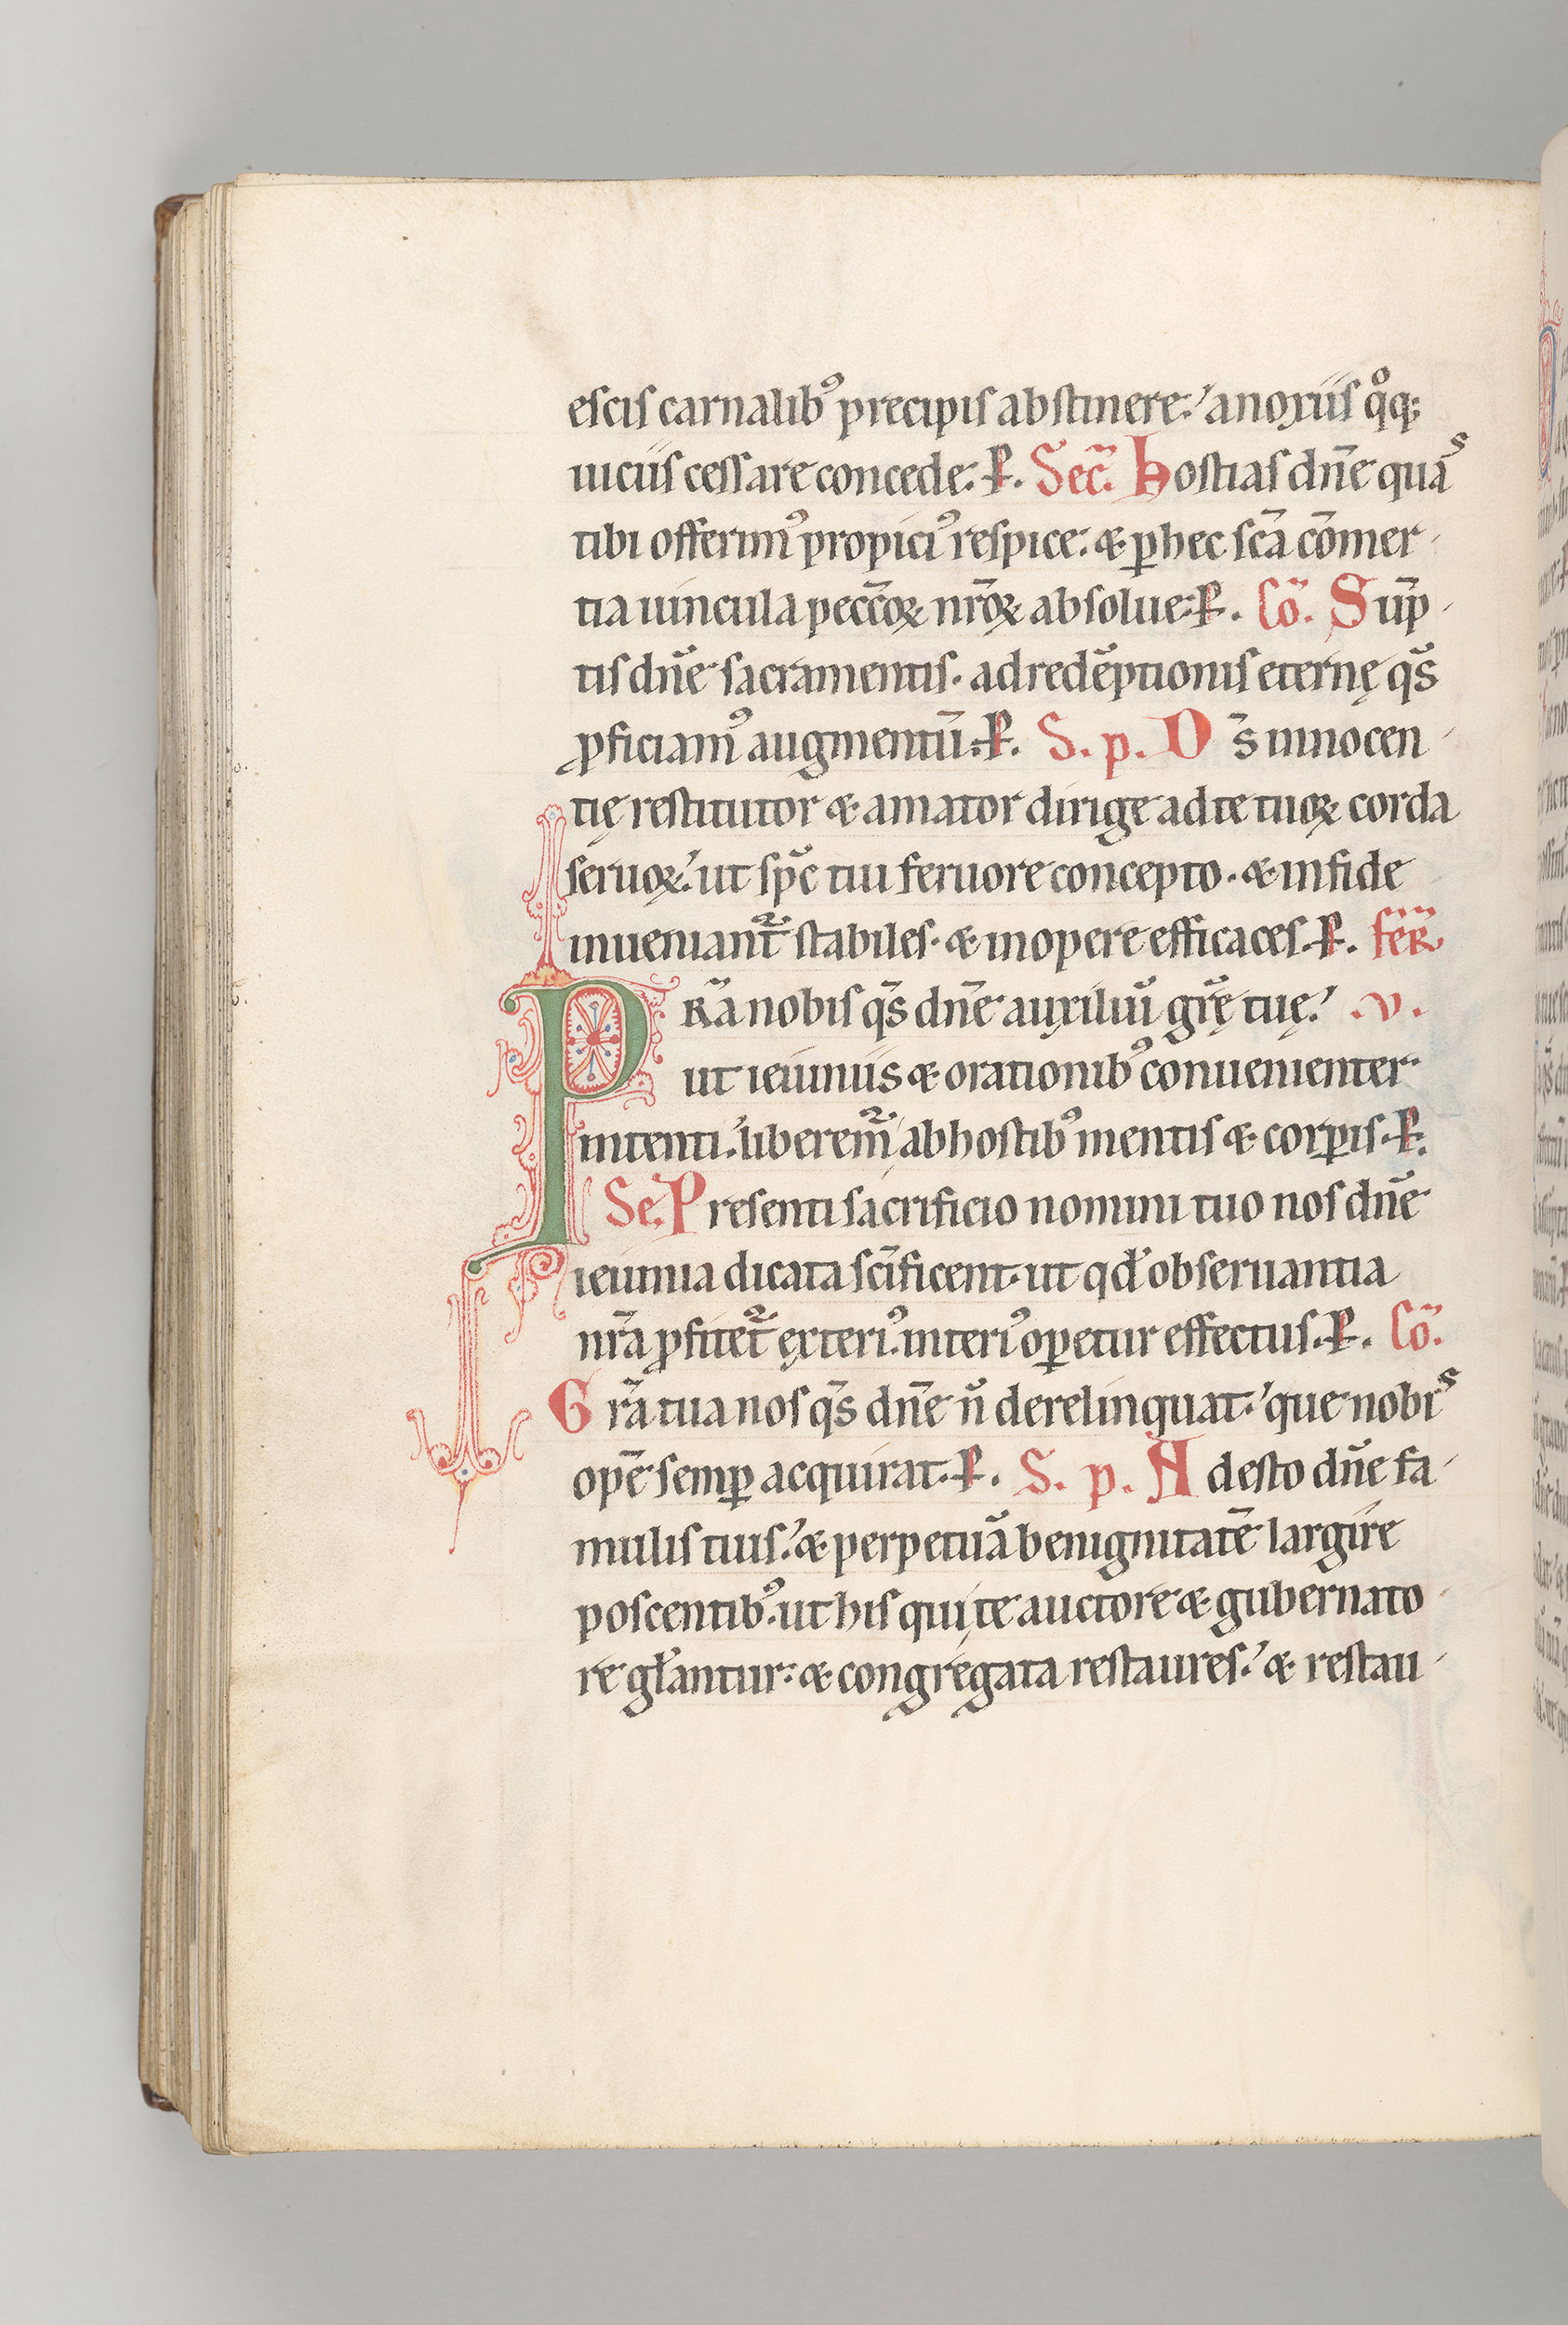 escis carnalibꝰ precipis abstinere: a noxiis qͦqꝫ
uiciis cessare concede. P. Sec̄. Hostias dn̄e quas
tibi offerimꝰ propiciꝰ respice: & ꝑ hec sc̄a cōmer
tia uincula pecc̄oꝝ nr̄oꝝ absolue. P. Cō. Sūp
tis dn̄e sacramentis. ad redēptionis eternę qs̄
ꝓficiamꝰ augmentū. P. S. p. Ds̄ innocen
tię restitutor & amator dirige ad te tuoꝝ corda
seruoꝝ: ut sp̄c tui feruore concepto. & in fide
inueniant᷑ stabiles. & in opere efficaces. P. fer̄
PRā nobis qs̄ dn̄e auxiliū gr̄ę tuę: .v.
ut ieiuniis & orationibꝰ conuenienter
intenti: liberem᷑ ab hostibꝰ mentis & corꝑis. P.
Se. Presenti sacrificio nomini tuo nos dn̄e
ieiunia dicata sc̄ificent. ut qd̄ obseruantia
nr̄a ꝓfitet᷑ exteriꝰ. interiꝰ oꝑetur effectus. P. Cō.
Gr̄a tua nos qs̄ dn̄e n̄ derelinquat: que nobis
opē semꝑ acquirat. P. S. p. Adesto dn̄e fa
mulis tuis: & perpetuā benignitatē largire
poscentibꝰ. ut his qui te auctore & gubernato
re gl̄antur: & congregata restaures: & restau